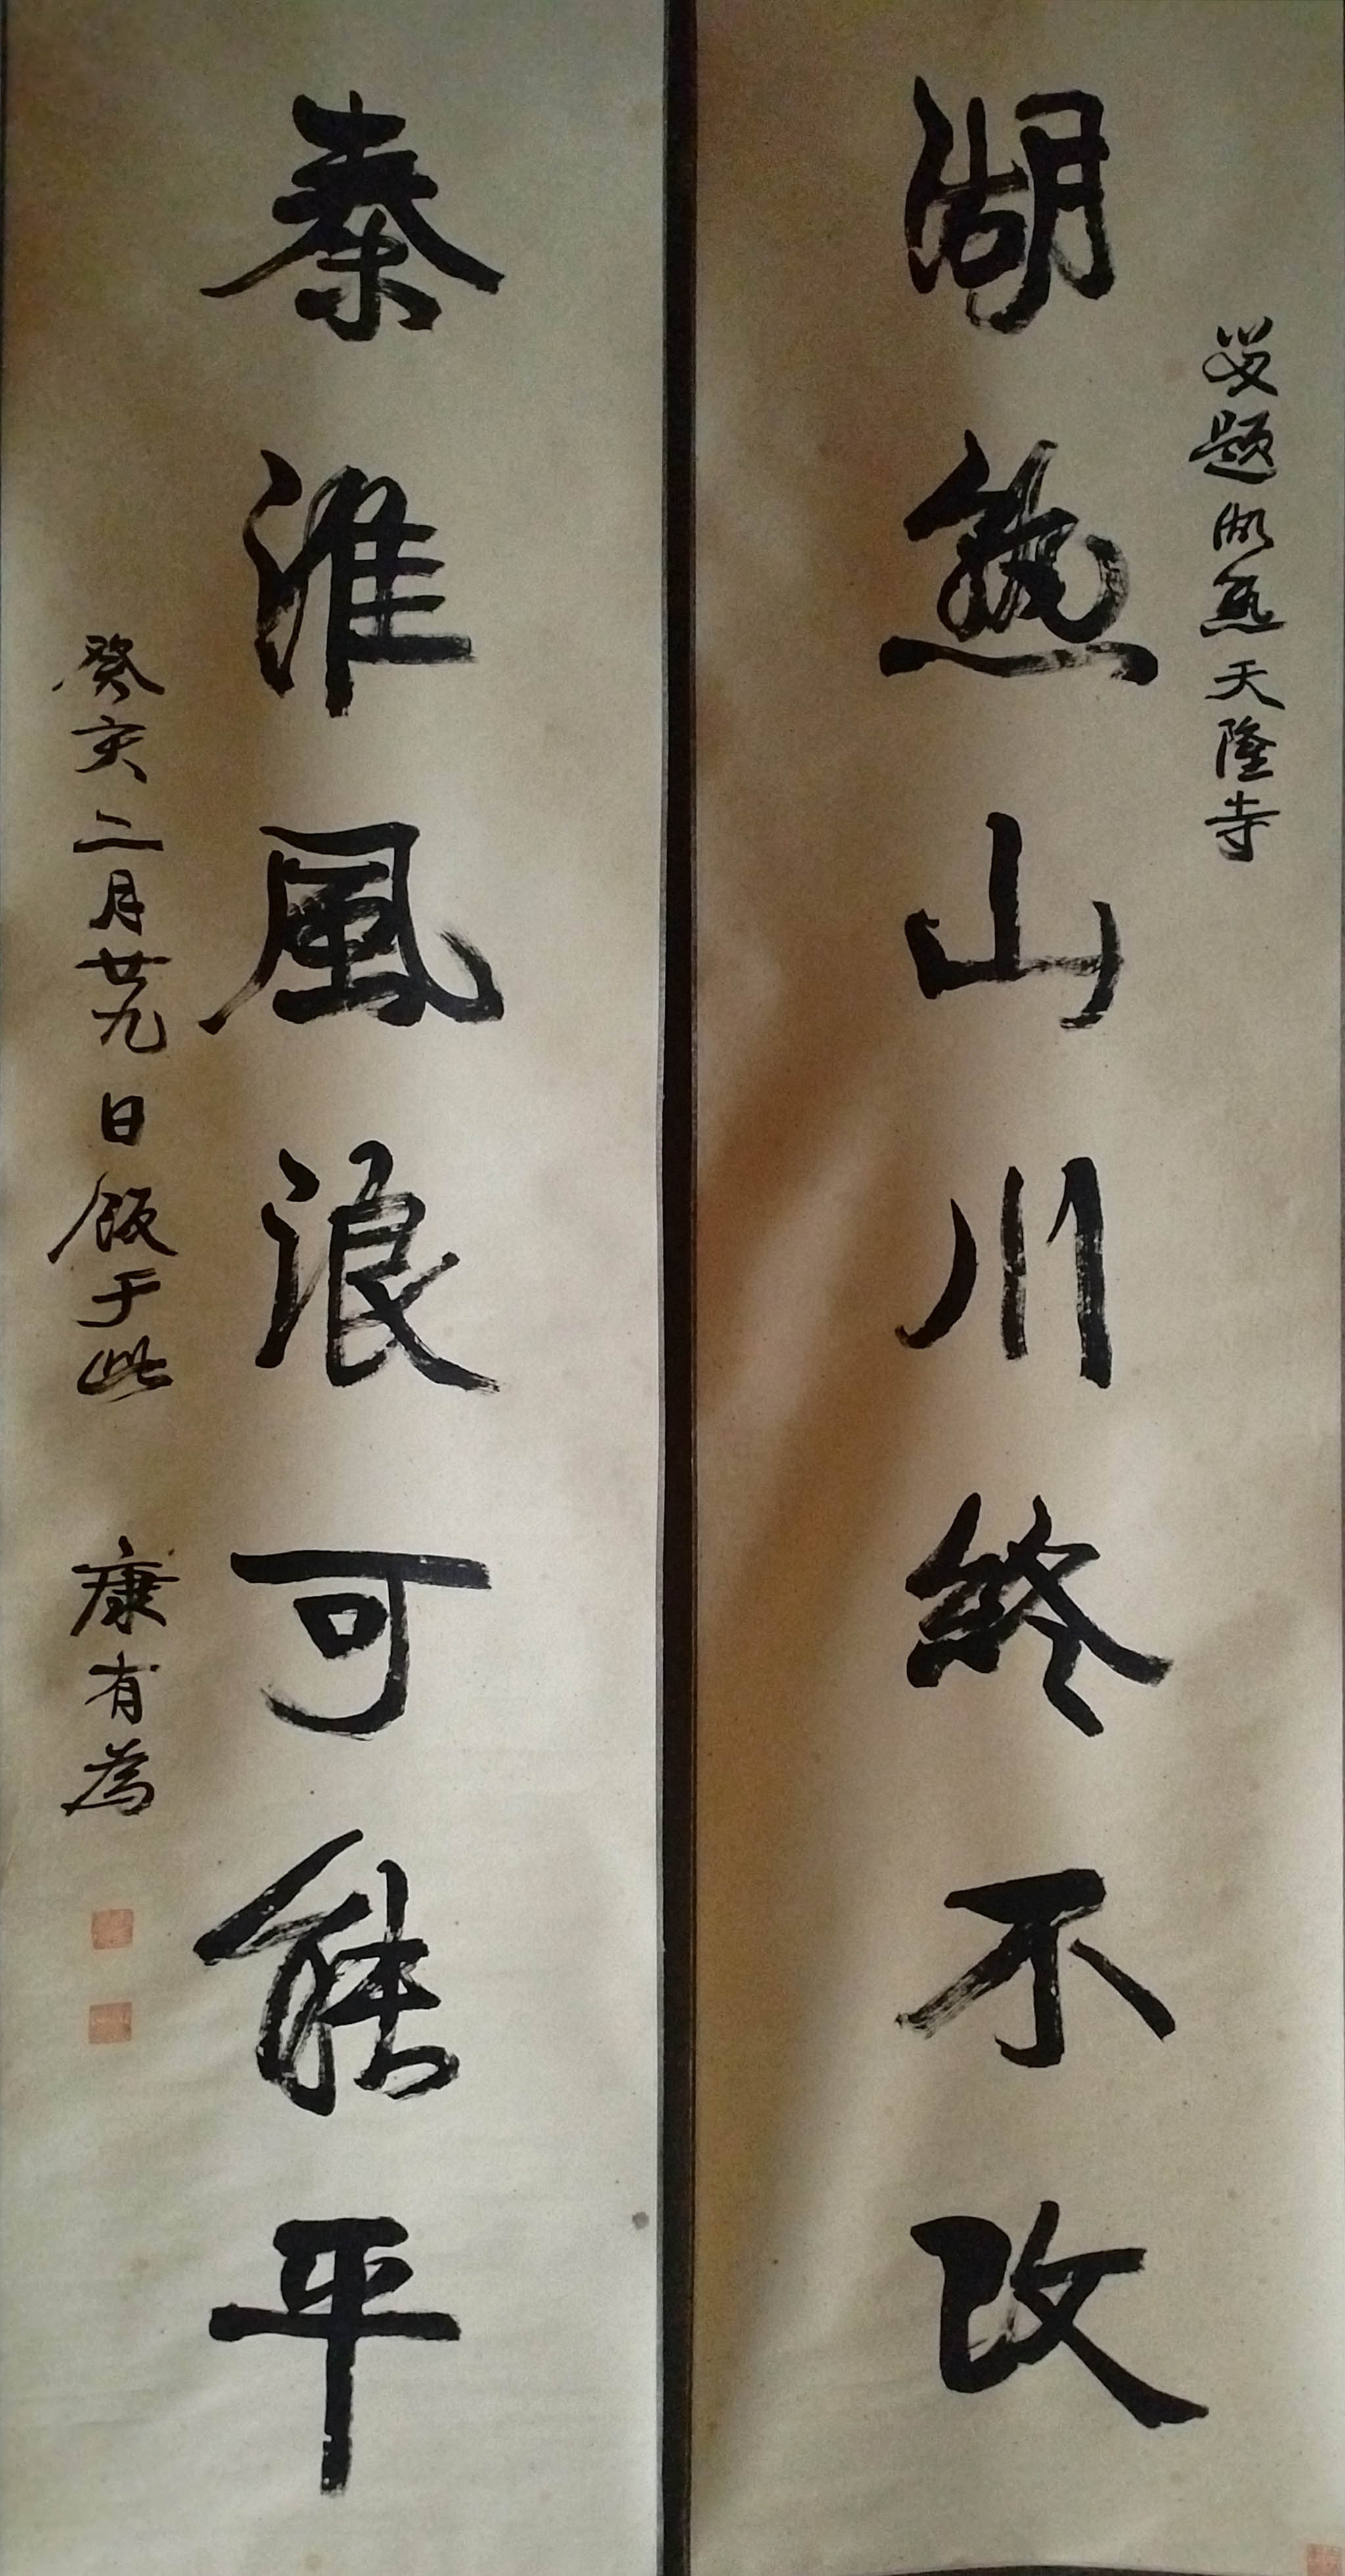 湖熟山川終不改
秦淮風浪可能平
題湖熟天隆寺
癸亥二月廿九日飯于此
康有為